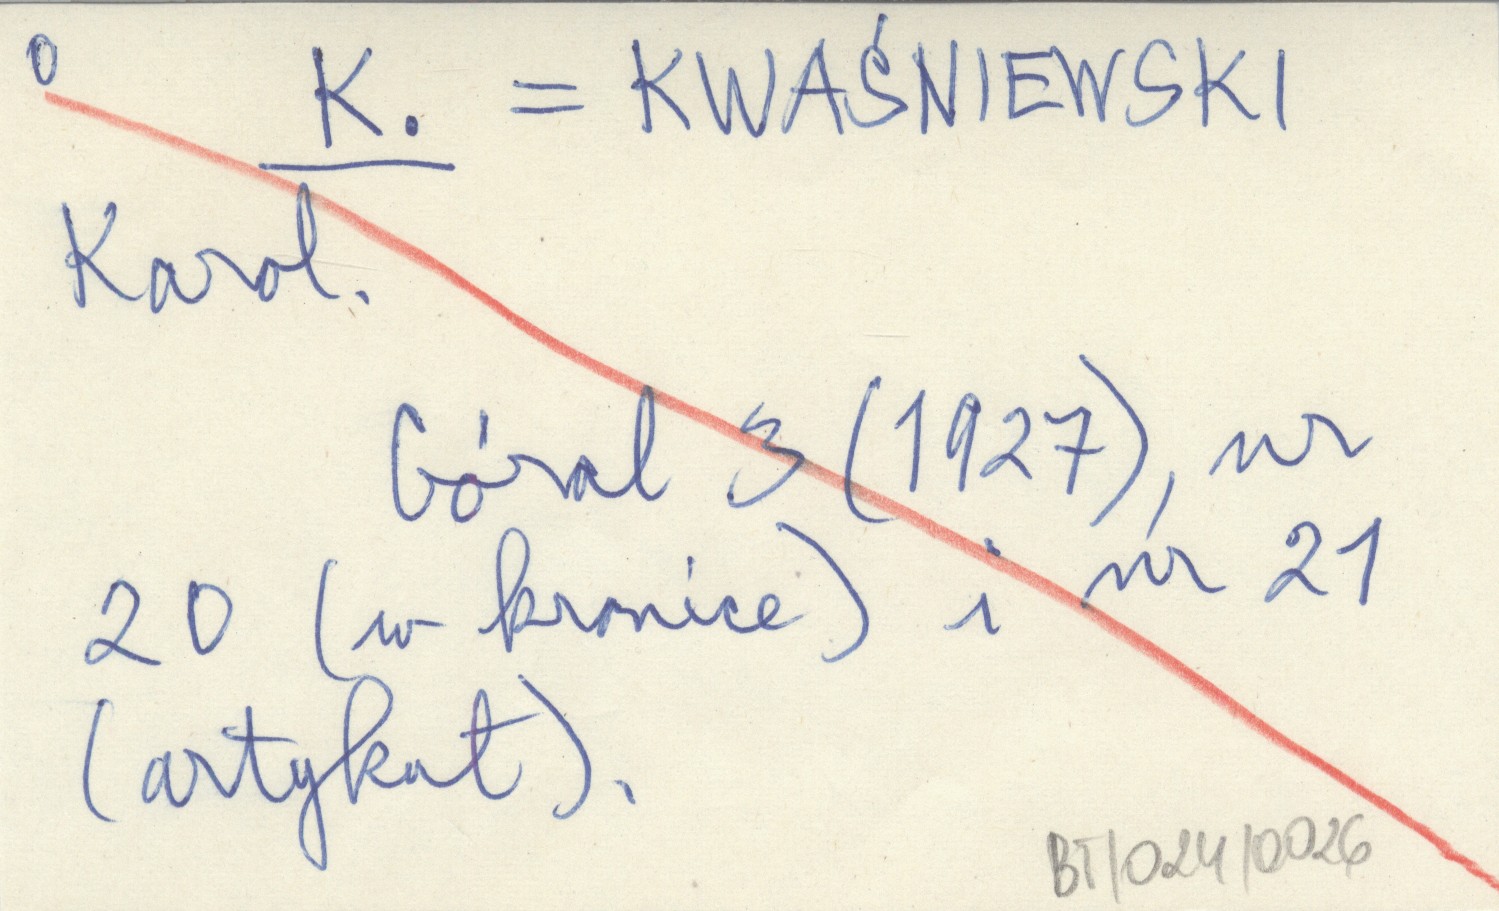 0 K. = KWAŚNIEWSKI
Karol.
Góral 3 (1927), nr
20 (w kronice) i nr 21
(artykuł).
BT/024/0026